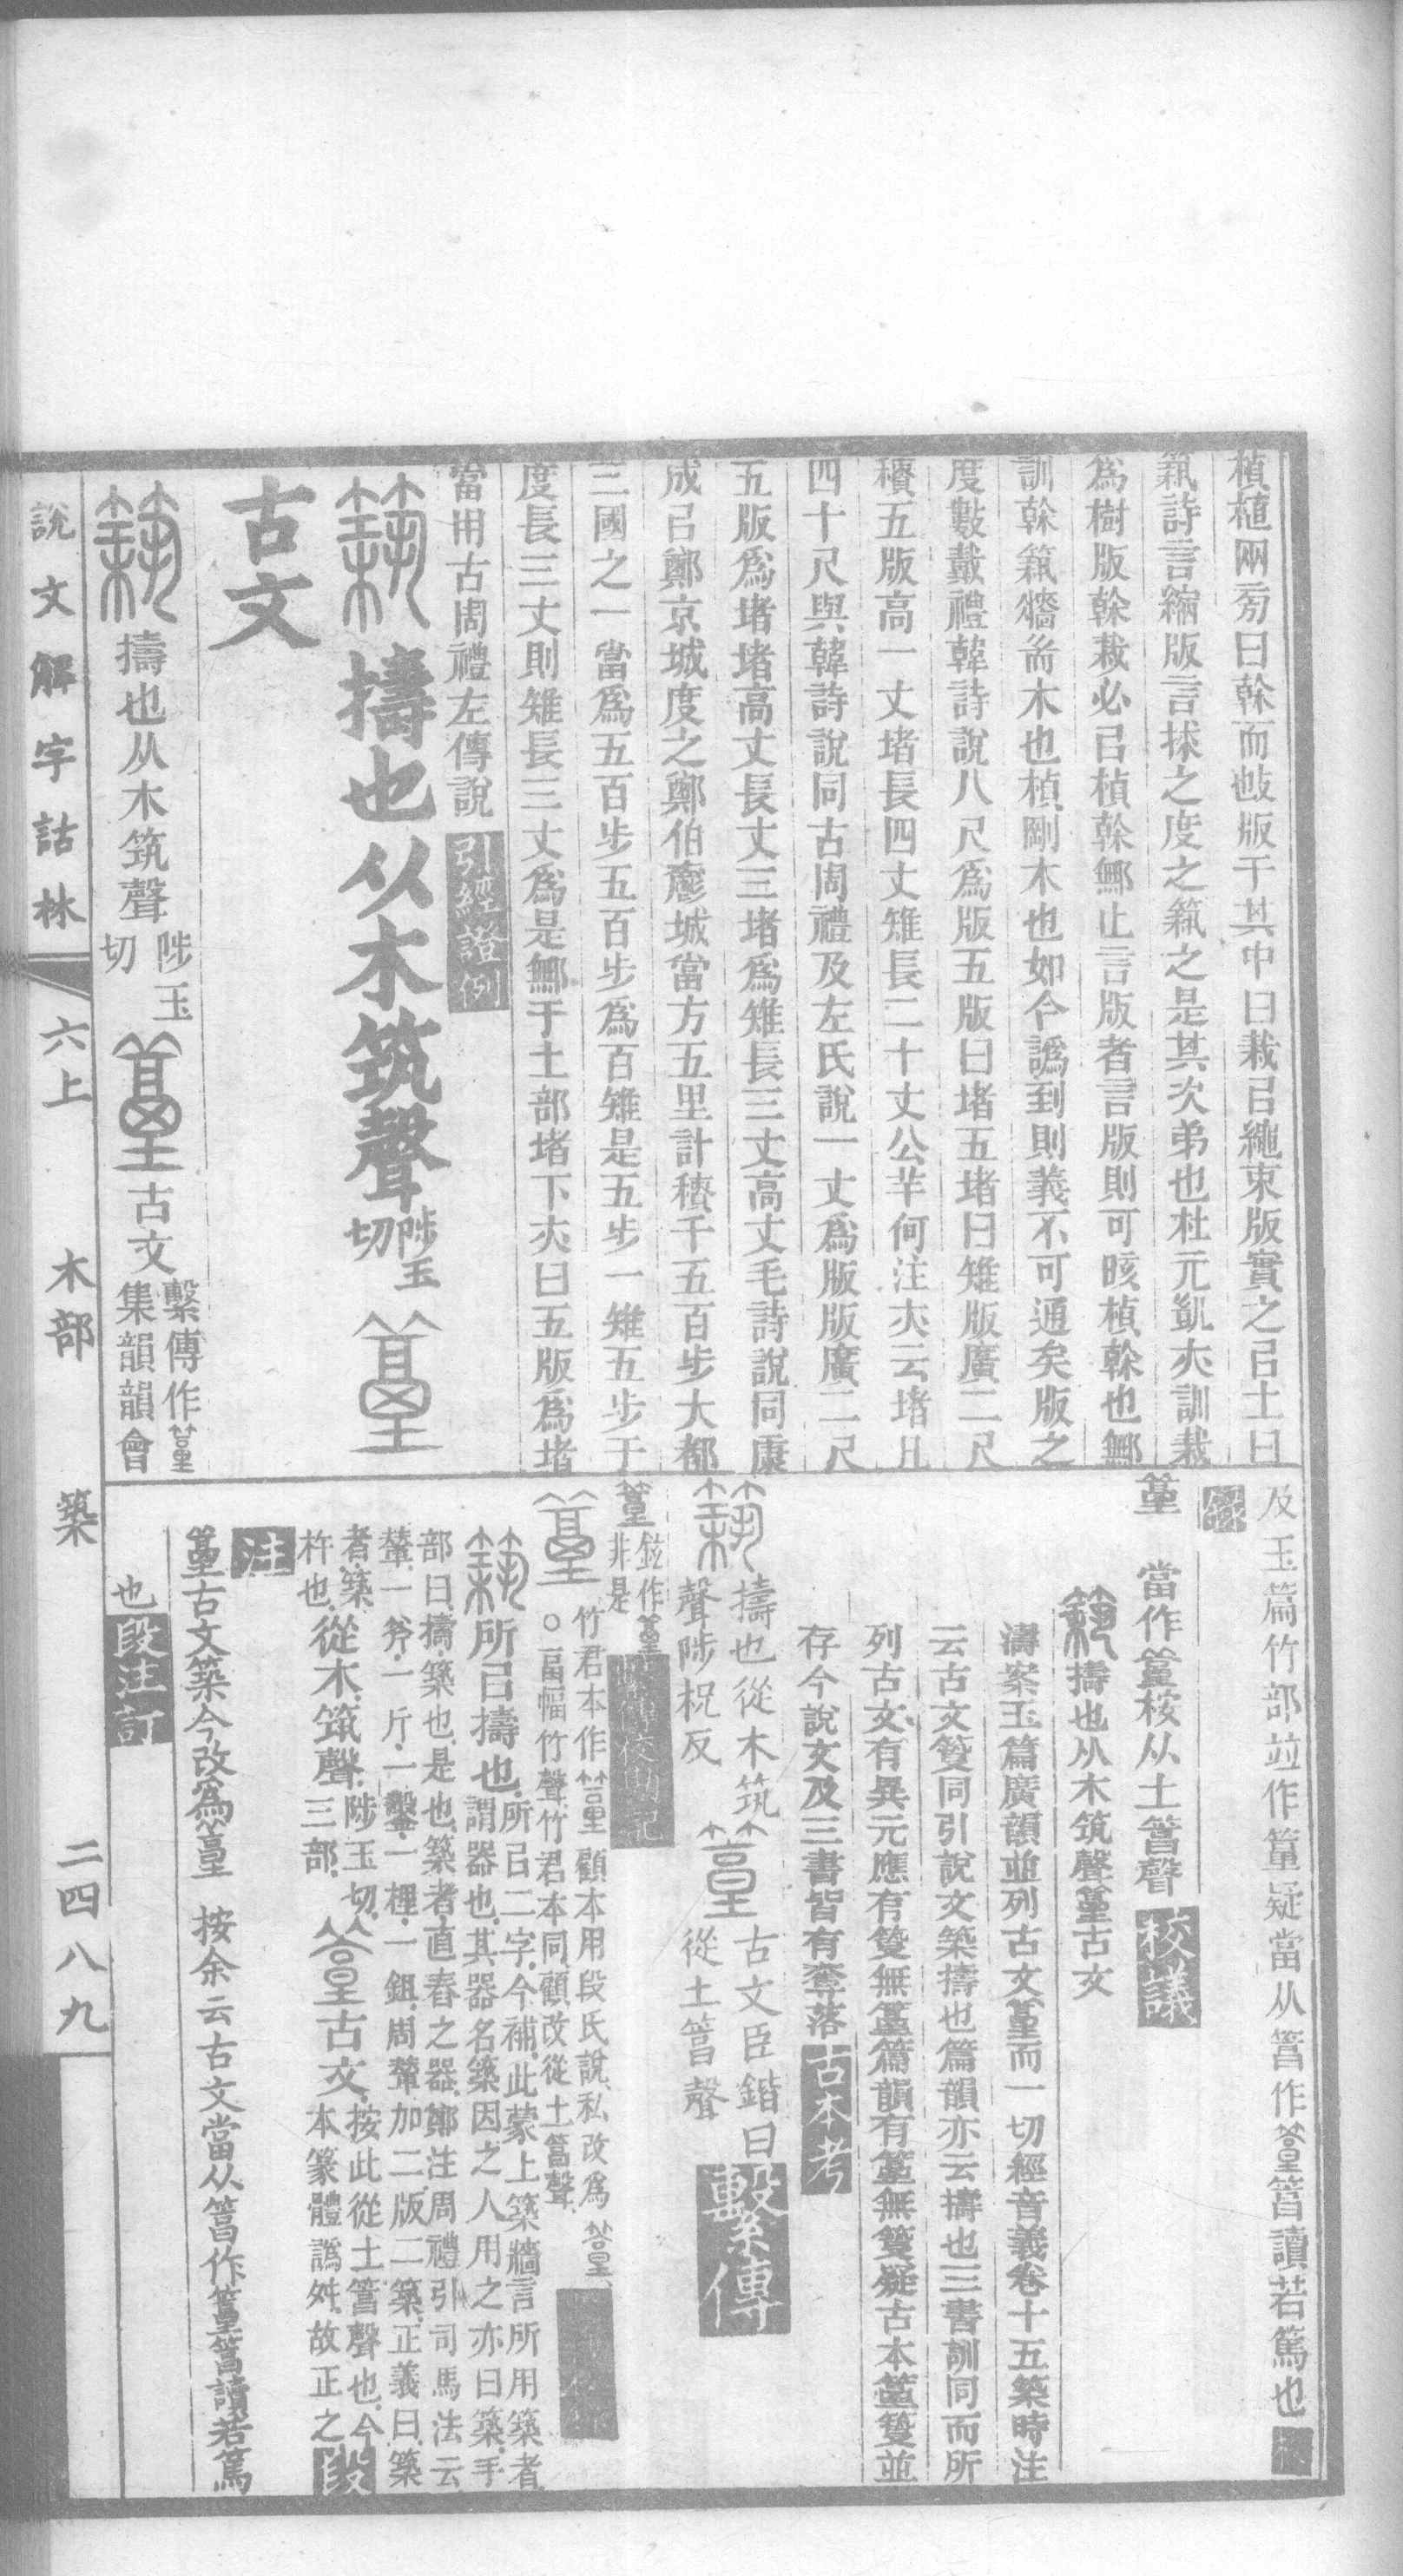 楨植兩旁曰榦而攱版于其中曰栽㠯繩束版實之㠯土曰
築詩言縮版言捄之度之築之是其次弟也杜元凱亦訓栽
為樹版榦栽必㠯楨榦鄦止言版者言版則可晐楨榦也鄦
訓榦築牆耑木也楨剛木也如今譌到則義不可通矣版之
度數戴禮韓詩說八尺為版五版曰堵五堵曰雉版廣二尺
積五版高一丈堵長四丈雉長二十丈公羊何注亦云堵凡
四十尺與韓詩說同古周禮及左氏說一丈為版版廣二尺
五版為堵堵高丈長丈三堵為雉長三丈高丈毛詩說同康
成㠯鄭京城度之鄭伯爵城當方五里計積千五百步大都
三國之一當為五百步五百步為百雉是五步一雉五步于
度長三丈則雉長三丈為是鄦于土部堵下亦曰五版為堵
當用古周禮左傳說 引經證例
築 擣也从木筑聲 陟玉切
古文
築 擣也从木筑聲 陟玉切 古文 繫傳作 集韻韻會
及玉篇竹部並作 疑當从䈞作 䈞讀若篤也
錄
當作 桉从土䈞聲 校議
築擣也从木筑聲 古文
濤案玉篇廣韻並列古文 而一切經音義卷十五築時注
云古文 同引說文築擣也篇韻亦云擣也三書訓同而所
列古文有異元應有 無 篇韻有 無 疑古本 並
存今說文及三書皆有奪落 古本考
築 擣也從木筑聲陟柷反 古文臣鍇曰從土䈞聲 繫傳
竝作 非是 繫傳校勘記
竹君本作 顧本用段氏說私改為
○畐幅竹聲竹君本同顧改從土䈞聲
築 所㠯擣也 所㠯二字今補此蒙上築牆言所用築者謂器也其器名築因之人用之亦曰築手
部曰擣築也是也築者直舂之器鄭注周禮引司馬法云輦一斧一斤一鑿一梩一鉏周輦加二版二築正義曰築
者築杵也 從木筑聲 陟玉切三部 古文 按此從土䈞聲也今本篆體譌舛故正之 段
注
古文築今改為 按余云古文當从䈞作 䈞讀若篤
也 段注訂
說文解字詁林 六上 木部 築 二四八九